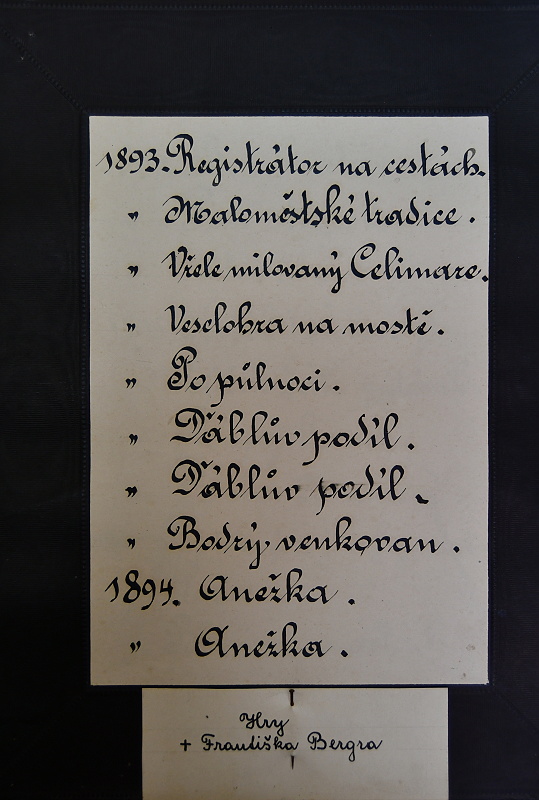 1893. Registrátor na cestách.
„ Maloměstské tradice.
„ Vřele milovaný Celimare.
„ Veselohra na mostě.
„ Po půlnoci.
„ Ďáblův podíl.
„ Ďáblův podíl.
„ Bodrý venkovan.
1894. Anežka.
„ Anežka.
Hry
+ Františka Bergra